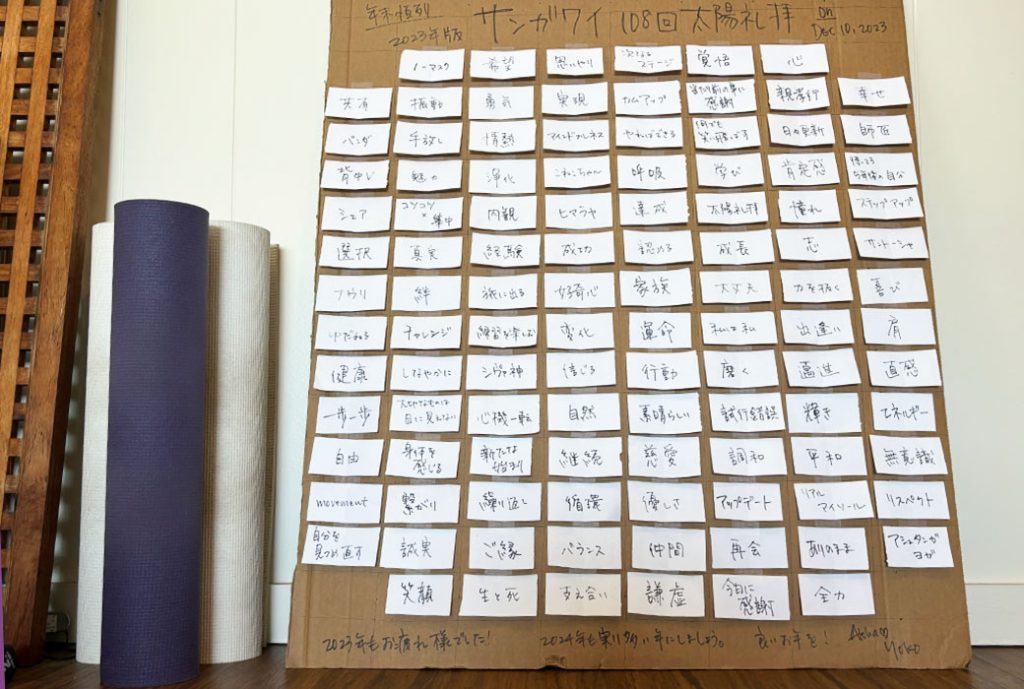 年末恒例
2023年版
サンガワイ 108回 太陽礼拝
on
Dec 10, 2023
ノーマスク 希望 思いやり 次なるステージ 覚悟 心
共有 振動 勇気 実現 カムアップ 当たり前の事に感謝 親孝行 幸せ
パンダ 手放し 情熱 マインドフルネス やればできる 何でも笑い飛ばす 日々更新 師匠
背中 魅力 浄化 呼吸 学び 肯定感
シェア コツコツ×集中 内観 ヒマラヤ 達成 太陽礼拝 憧れ ステップアップ
選択 真良 経験 底力 認める 成長 志 サントーシャ
絆 旅に出る 好奇心 家族 大丈夫 力を抜く 喜び
ゆだねる チャレンジ 練習を楽しむ 変化 運命 私は私 出逢い 肩
健康 しなやかに シヴァ神 信じる 行動 磨く 邁進 直感
一歩一歩 大切なものは目に見えない 心機一転 自然 素晴らしい 試行錯誤 輝き エネルギー
自由 身体を感じる 新たな始まり 継続 慈愛 調和 平和 無意識
movement 繋がり 繰り返し 循環 優しさ アップデート リアルマイソール リスペクト
自分を見つめ直す 誠実 ご縁 バランス 仲間 再会 ありのまま アシュタンガヨガ
笑顔 生と死 支え合い 謙虚 今日に感謝 全力
2023年もお疲れ様でした! 2024年も実り多い年にしましょう。 良いお年を!
Yoko